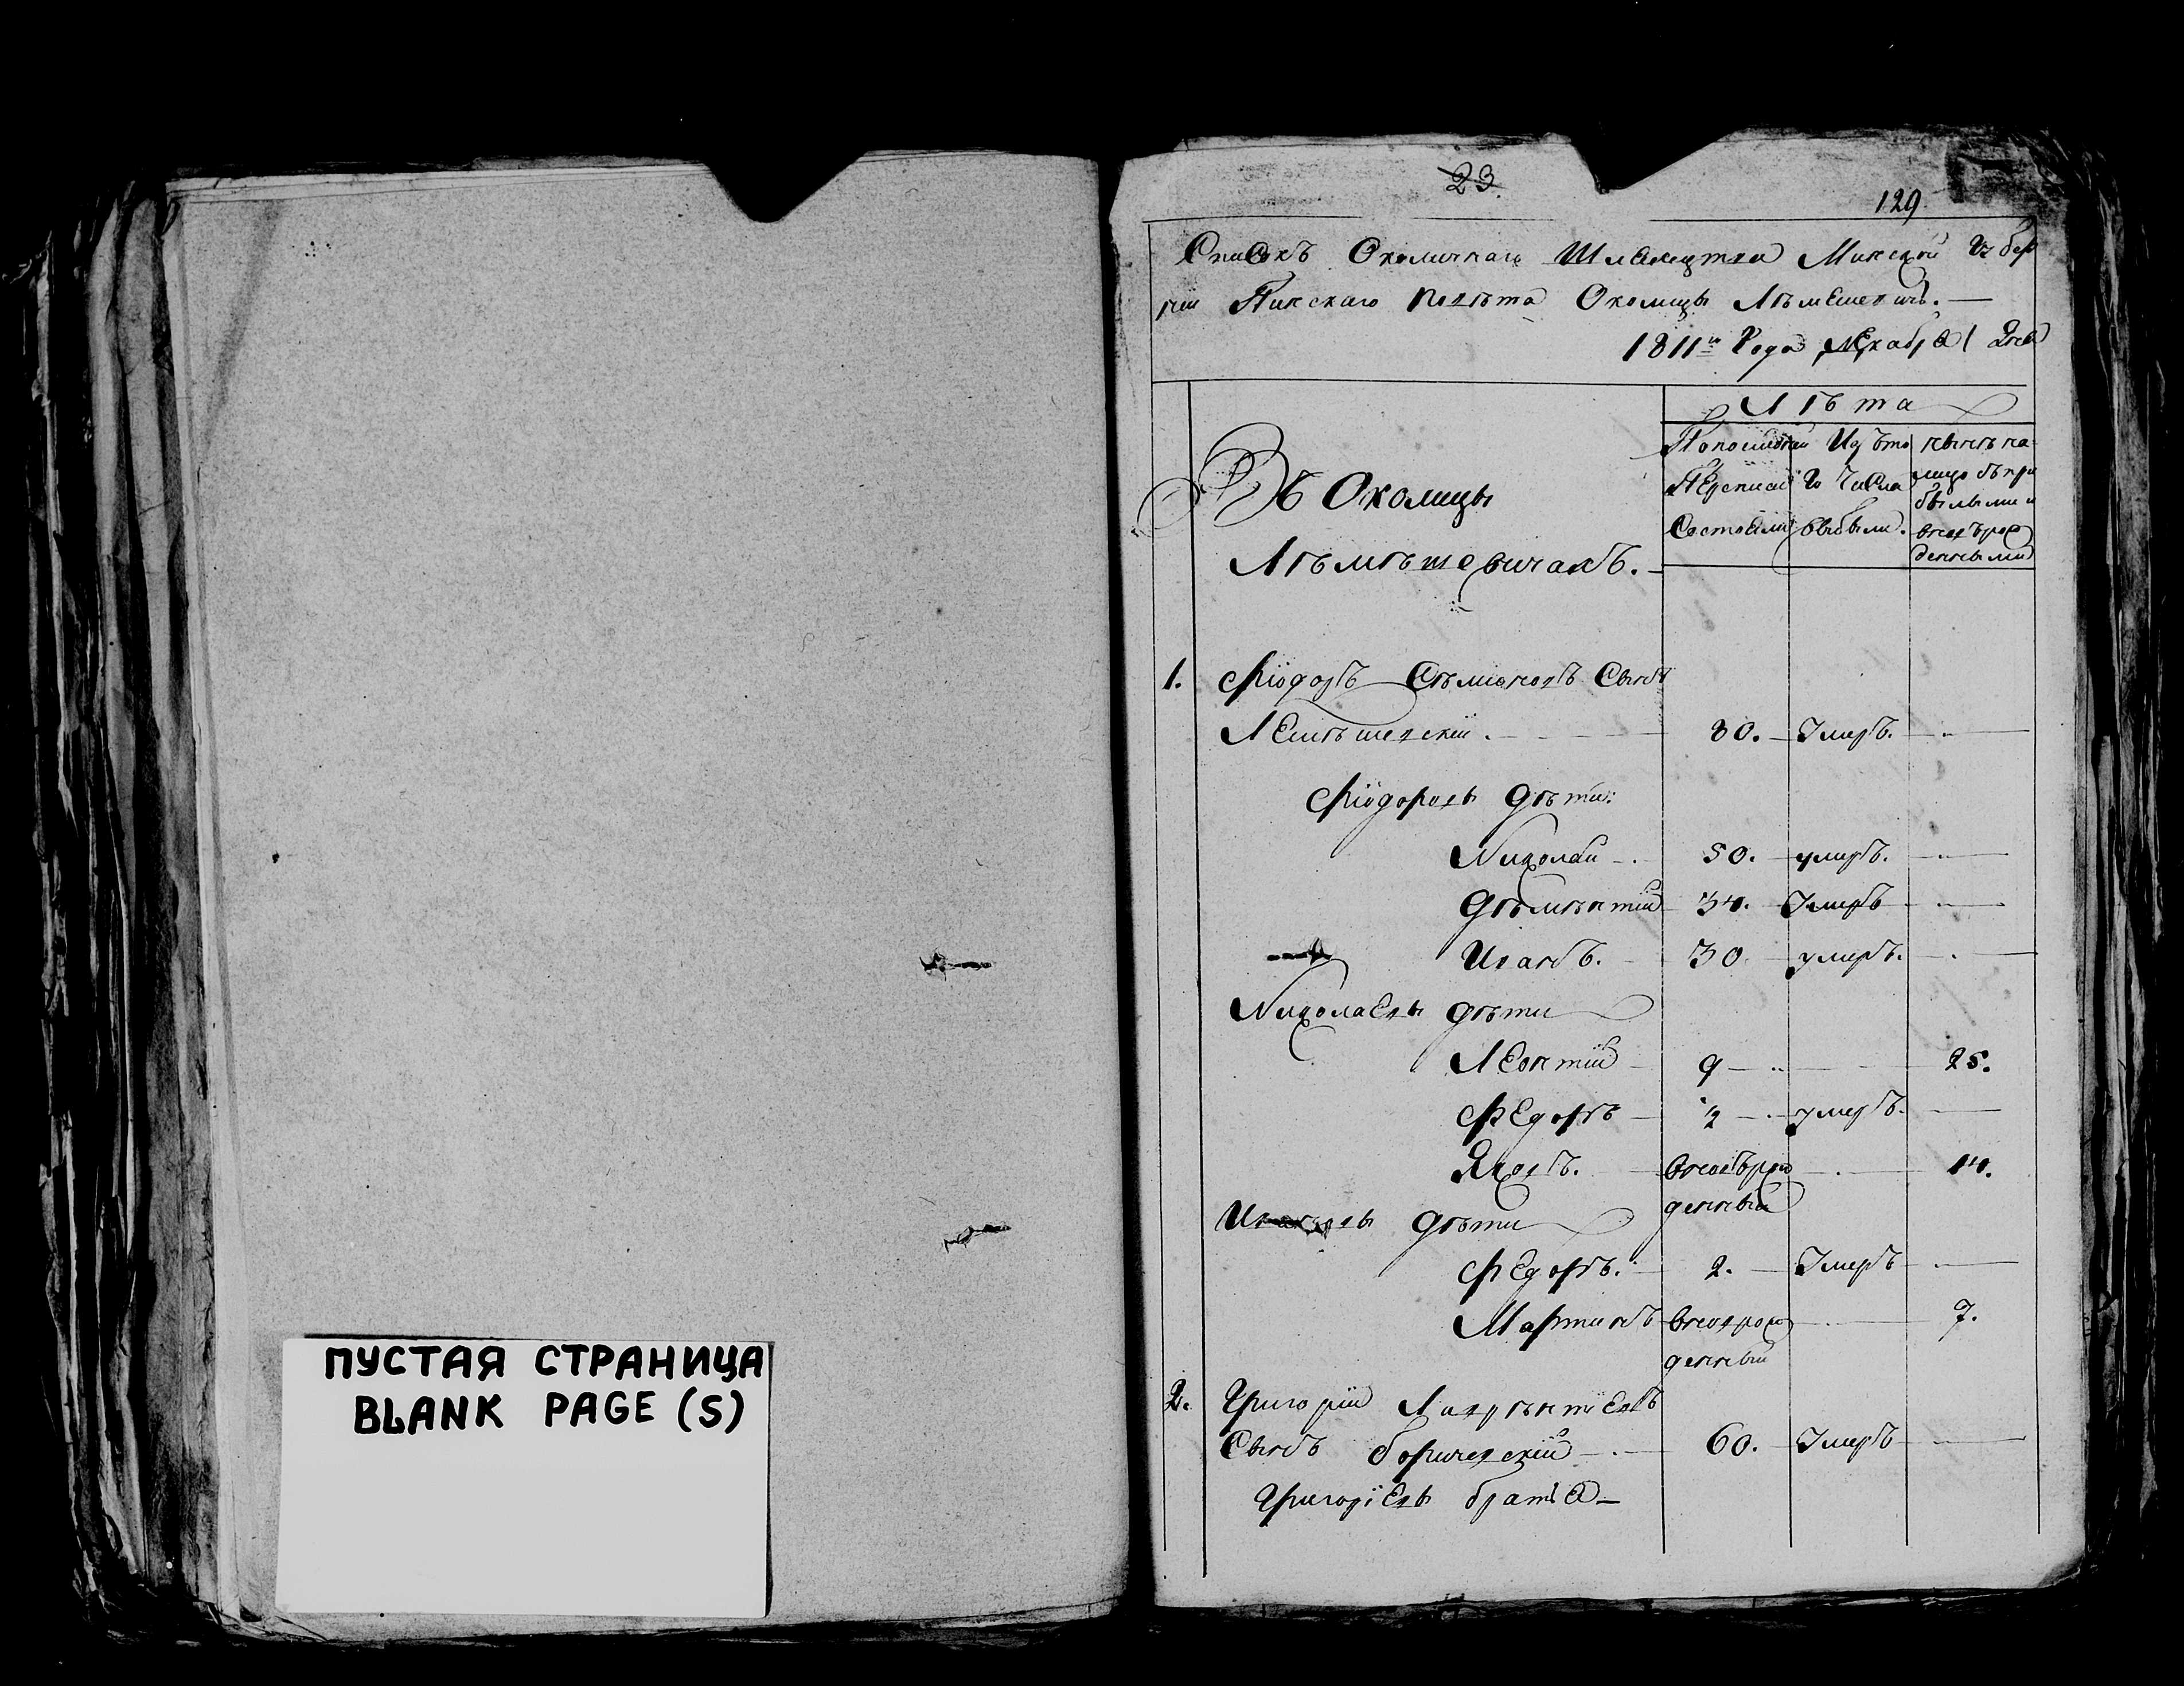 ПУСТАЯ СТРАНИЦА
BLANK PAGE (S)
23.
129.
Списокъ Околичнаго Шляхецтва Минской Губер
ніи Пинскаго Повѣта Околицы Лѣмешевичъ. —
1811го Года Декабря 1 Дня
Лѣта
Въ Околицы
Лѣмѣшевичахъ.
По последней Переписи Состояли
Изъ того Числа выбыли.
нынѣ на лицо съ прибылыми и вновъ рожденными
1. Фіодоръ Сѣміоновъ Сынъ
Лемѣшевскій. 80. Умеръ.
Фіодоровы Дѣти:
Николай 50. умеръ.
Дѣмѣнтій 34. Умеръ
Иванъ. 30 умеръ.
Николаевы дѣти
Леонтій 9 25.
Федоръ 2 умеръ.
Яковъ. вновъ рожденный 14.
Дѣти
Федоръ. 2. Умеръ
Мартинъ вновь рожденный 7.
2. Григорій Лаврѣнтіевъ
Сынъ Боричевскій 60. Умеръ
Григоріевы братья —